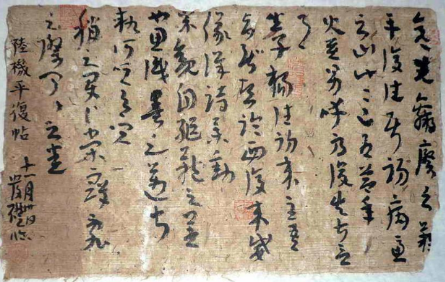 先羸瘵恐難
平復往屬初病慮
不止此此已為慶承
使唯男幸為復失前憂
耳
子楊往初來主吾
不能盡臨西復來威
儀詳跱舉動
成觀自軀體之美
也思識量之邁前
所恒有宜
稱之夏伯榮寇亂
之際聞問不悉
陸機平復帖
十一月
臨